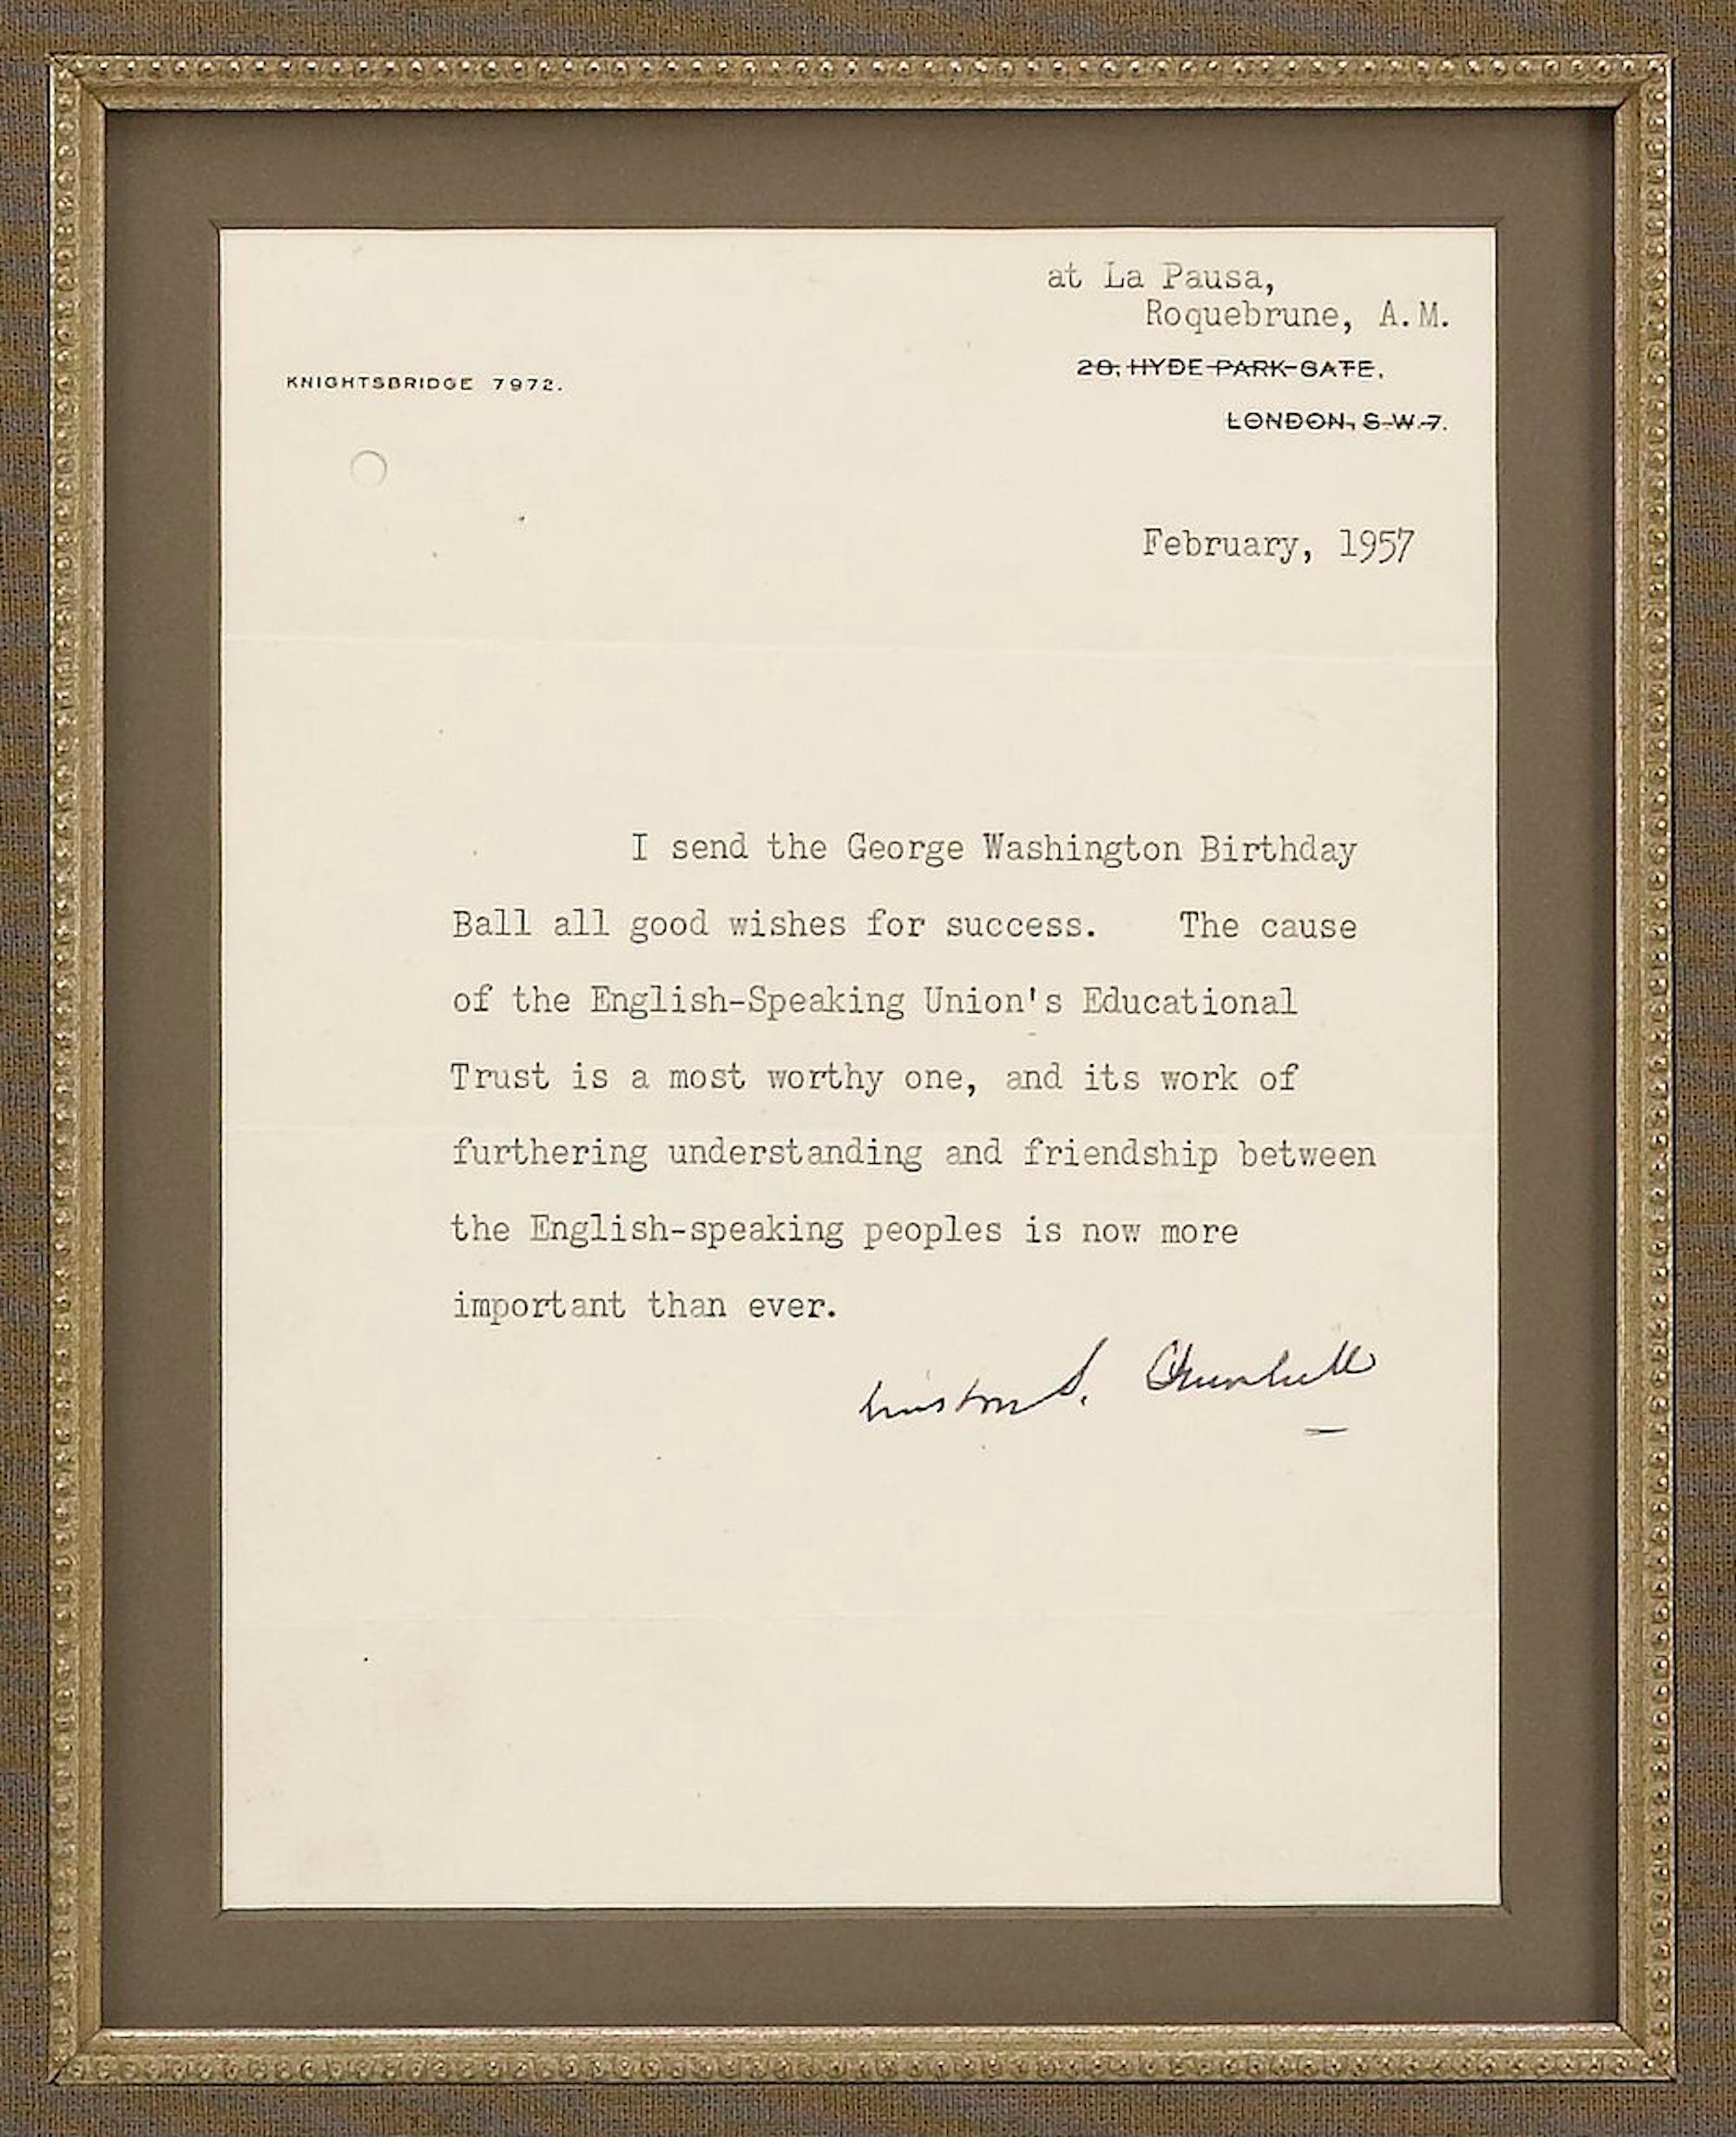 at La Pausa,
Roquebrune, A.M.
KNIGHTSBRIDGE 7972.
28, HYDE PARK GATE,
LONDON, S.W.7.
February, 1957
I send the George Washington Birthday
Ball all good wishes for success. The cause
of the English-Speaking Union's Educational
Trust is a most worthy one, and its work of
furthering understanding and friendship between
the English-speaking peoples is now more
important than ever.
Winston S. Churchill